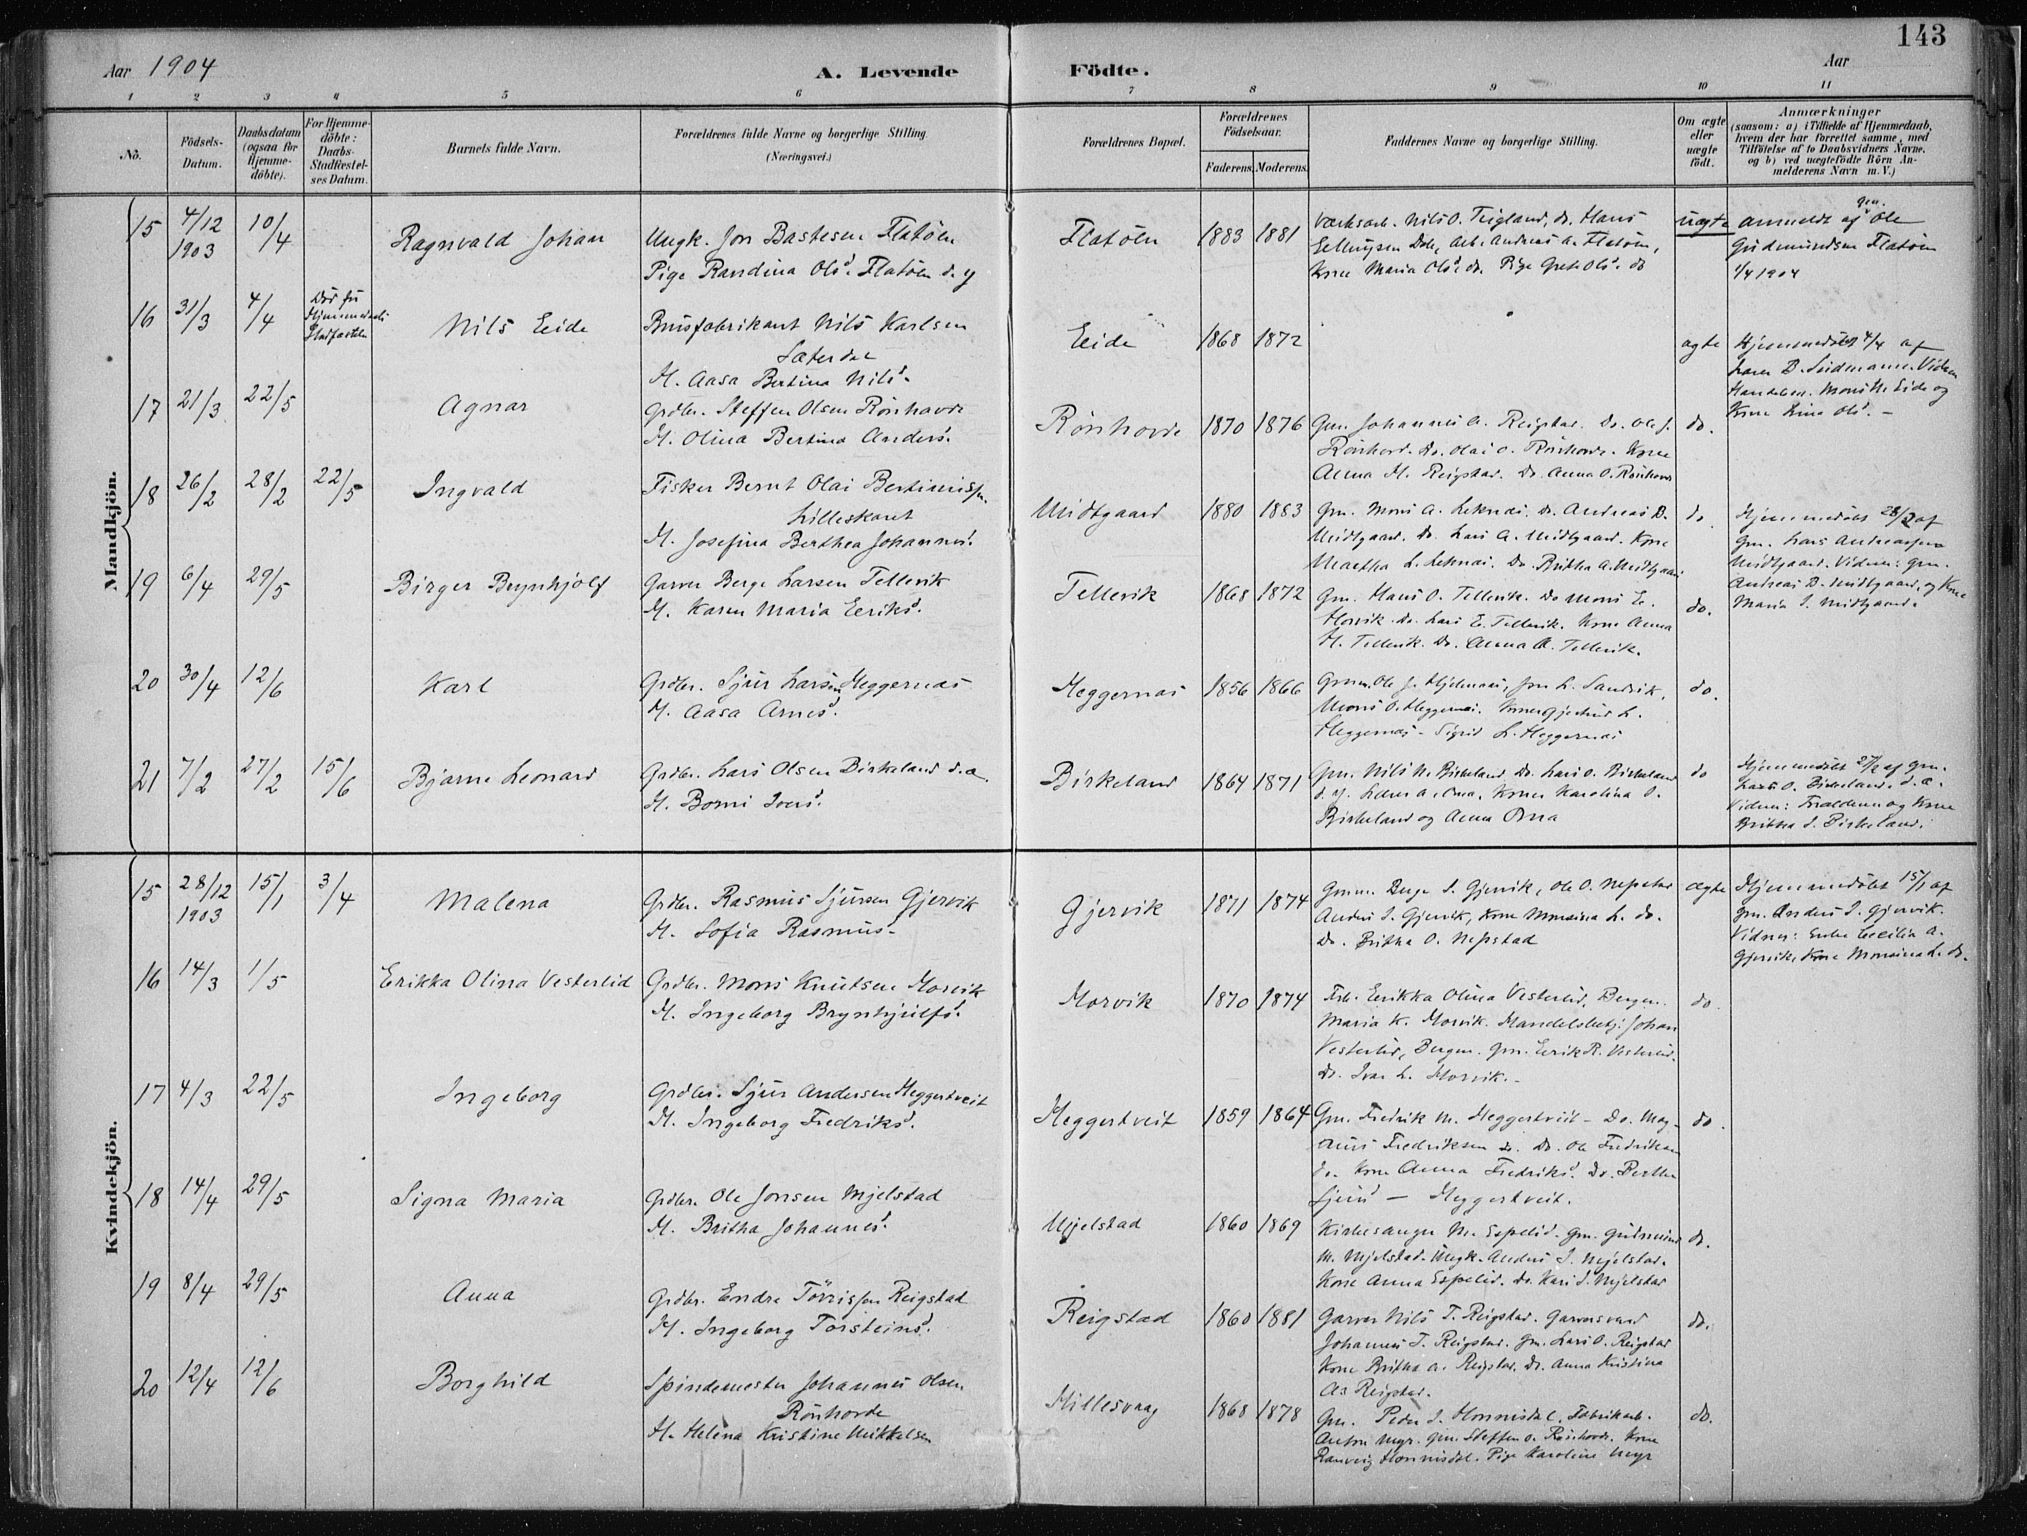 143
Aar 1904
A. Levende Födte.
Aar
1 2 3 4 5 6 7 8 9 10 11
No.
Födsels-
Datum.
Daabsdatum
(ogsaa for
Hjemme-
döbte).
For Hjemme-
döbte:
Daabs-
Stadfæstel-
ses Datum.
Barnets fulde Navn.
Forældrenes fulde Navne og borgerlige Stilling
(Næringsvei.)
Forældrenes Bopæl.
Forældrenes
Födselsaar.
Faderens. Moderens.
Faddernes Navne og borgerlige Stilling.
Om ægte
eller
uægte
födt.
Anmærkninger
(saasom: a) i Tilfælde af Hjemmedaab,
hvem der har forrettet samme, med
Tilföielse af to Daabsvidners Navne,
og b) ved uægtefödte Börn An-
melderens Navn m. V.)
Mandkjön.
15 4/12 1903 10/4 Ragnvald Johan
Ungk. Jon Bastesen Flatöen
Pige Randina Olsd. Flatöen d. y
Flatöen 1883 1881
Værksarb. Nils O. Teigland, do. Hans
Ellingsen Dale, Arb. Andreas A. Flatöen,
Kone Maria Olsd. do. Pige Grete Olsd. do
uægte
anmeldt af gm. Ole
Gudmundsen Flatöen
1/4 1904
16 31/3 4/4 Död før
Hjemmedaab
Stadfæstelse
Nils Eide
Brusfabrikant Nils Karlsen
Sæterdal
H. Aasa Bertina Nilsd.
Eide 1868 1872
ægte
Hjemmedöbt 4/4 af
Eide og
17 21/3 22/5 Agnar
Grdbr. Steffen Olsen Rönhovde
H. Olina Bertina Andersd.
Rönhovde 1870 1876
Gm. Johannes A. Reigstad. Do. Ole J.
Rönhovd. Do. Olai O. Rönhovde. Kone
Anna H. Reigstad. Do. Anna O. Rönhovde
do.
18 26/2 28/2 22/5 Ingvald
Fisker Bernt Olai Bertiniusen
Lilleskaret
H. Josefina Berthea Johannesd.
Midtgaard 1880 1883
Gm. Mons A. Leknes, do. Andreas D.
Midtgaard. Do. Lars A. Midtgaard. Kone
Martha L. Leknes. Do. Britha A. Midtgaard.
do
Hjemmedöbt 28/2 af
gm. Lars Andreassen
Midtgaard. Vidner: gm.
Andreas D. Midtgaard, og Kone
Maria J. Midtgaard.
19 6/4 29/5 Birger Brynhjolf
Garver Berge Larsen Tellevik
H. Karen Maria Eeriksd.
Tellevik 1868 1872
Gm. Hans O. Tellevik. Do Mons E.
Horvik. Do. Lars E. Tellevik. Kone Anna
H. Tellevik. Do. Anna A. Tellevik.
do.
20 30/4 12/6 Karl
Grdbr. Sjur Larsen Heggernæs
H. Aasa Arnesd.
Heggernæs 1856 1866
Gmm. Ole J. Hjelmaas, Jon L. Sandvik,
Mons O. Heggernes. Koner Gjertrud L.
Heggernæs - Sigrid L. Heggernæs
do.
21 7/2 27/2 15/6 Bjarne Leonard
Grdbr. Lars Olsen Birkeland d. æ.
H. Borni Iversd.
Birkeland 1864 1871
Gm. Nils N. Birkeland, Do. Lars O. Birkeland
d. y. Lærer A. Oma, Koner Karolina O.
Birkeland og Anna Oma
do
Hjemmedöbt 27/2 af gm.
Lars O. Birkeland, d. æ.
Vidner: Forældrene og Kone
Britha J. Birkeland.
Kvindekjön.
15 28/12 1903 15/1 3/4 Malena
Grdbr. Rasmus Sjursen Gjervik
H. Sofia Rasmusd.
Gjervik 1871 1874
Gmm. Berge S. Gjervik, Ole O. Nepstad
Anders S. Gjervik, Kone Monsina L. do.
Do. Britha O. Nepstad
ægte
Hjemmedöbt 15/1 af
gm. Anders S. Gjervik.
Vidner: Enke Cecilia A.
Gjervik, Kone Monsina L. do.
16 14/3 1/5 Erikka Olina Vesterlid
Grdbr. Mons Knutsen Morvik
H. Ingeborg Brynhjulfsd.
Morvik 1870 1874
Frk. Erikka Olina Vesterlid, Bergen.
Maria K. Morvik. Handelsbetj. Johan
Vesterlid, Bergen. Gm. Eerik R. Vesterlid.
Do. Ivar L. Morvik.-
do.
17 4/3 22/5 Ingeborg
Grdbr. Sjur Andersen Heggertveit
H. Ingeborg Fredriksd.
Heggertveit 1859 1864
Gm. Fredrik M. Heggertveit - Do. Mag-
nus Fredriksen do. Do. Ole Fredriksen
do. Kone Anna Fredriksd. Do. Berthe
Sjursd - Heggertveit.
do.
18 14/4 29/5 Signa Maria
Grdbr. Ole Jonsen Mjelstad
H. Britha Johannesd.
Mjelstad 1860 1869
Kirkesanger M. Espelid. Gm. Gudmund
M. Mjelstad. Ungk. Anders J. Mjelstad.
Kone Anna Espelid. Do. Kari J. Mjelstad
do.
19 8/4 29/5 Anna
Grdbr. Endre Törrissen Reigstad
H. Ingeborg Torsteinsd.
Reigstad 1860 1881
Garver Nils T. Reigstad. Garversvend
Johannes T. Reigstad. Gm. Lars O. Reigstad
Kone Britha A. Reigstad. Do. Anna Kristina
As Reigstad.
do.
20 12/4 12/6 Borghild
Spindemester Johannes Olsen
Rönhovde
H. Helena Kristine Mikkelsen
Hillesvaag 1868 1878
Gm. Peder J. Honnisdal. Fabrikarb.
Anton Myr. Gm. Steffen O. Rönhovde. Kone
Ranveig Honnisdal. Pige Karoline Myr
do.